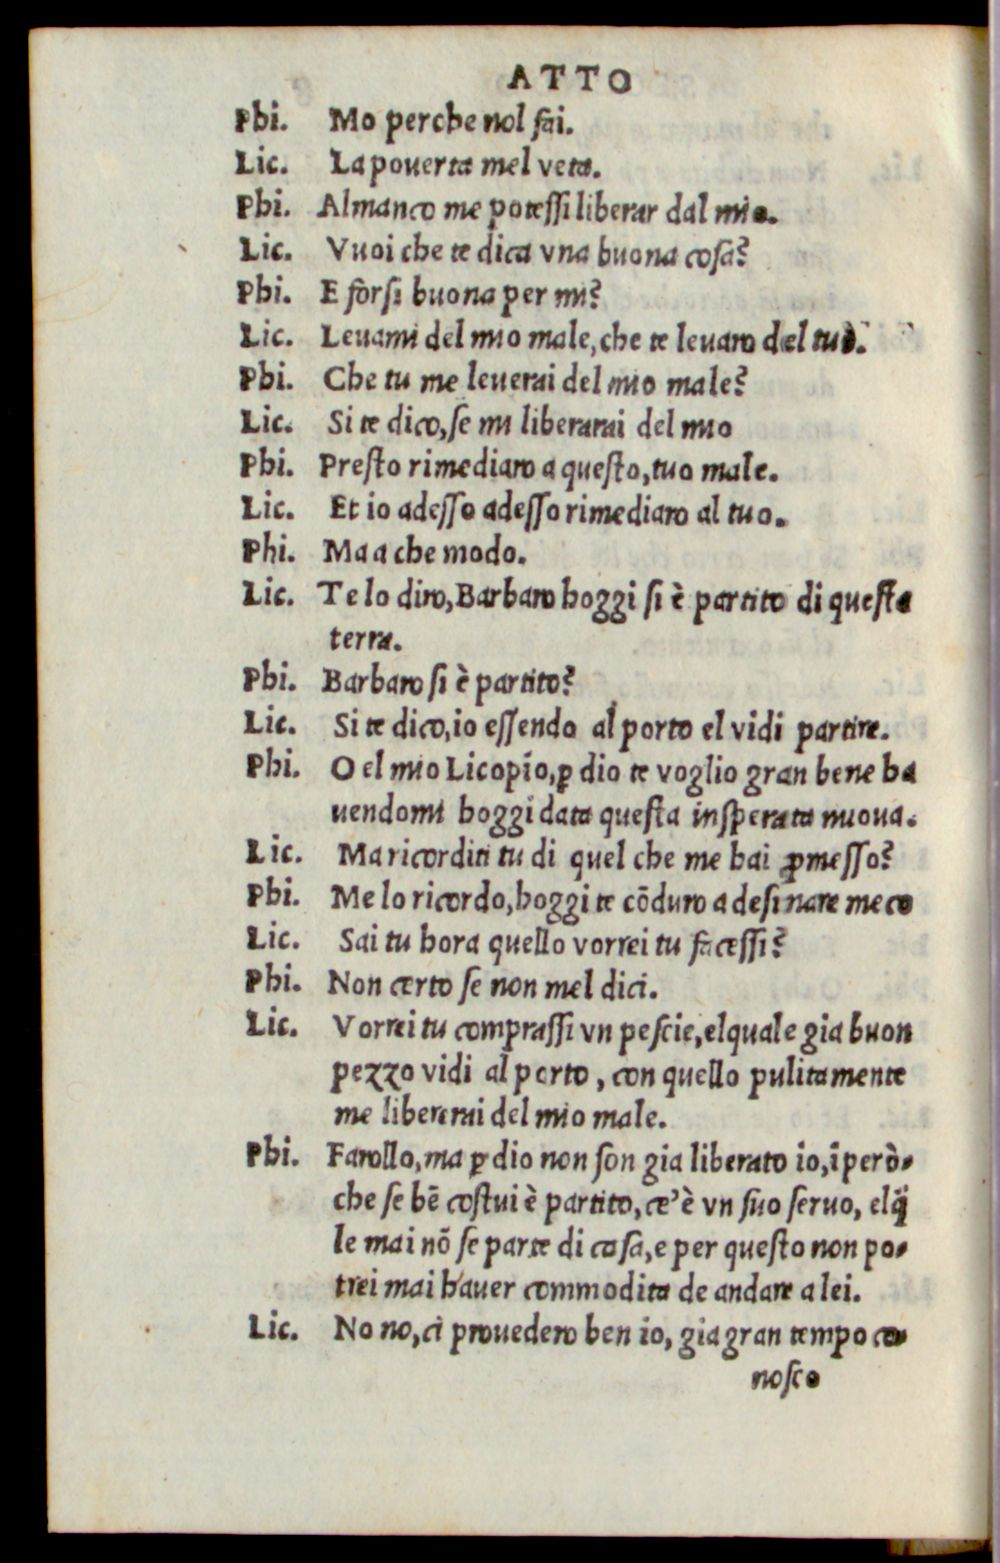 ATTO
Phi. Mo perche nol fai.
Lic. La pouerta mel veta.
Phi. Almanco me potessi liberar dal mio.
Lic. Vuoi che te dica vna buona cosa?
Phi. E forsi buona per mi?
Lic. Leuami del mio male, che te leuaro del tuo.
Phi. Che tu me leuerai del mio male?
Lic. Si te dico, se mi liberarai del mio
Phi. Presto rimediaro a questo, tuo male.
Lic. Et io adesso adesso rimediaro al tuo.
Phi. Ma a che modo.
Lic. Te lo diro, Barbaro hoggi si è partito di questa
terra.
Phi. Barbaro si è partito?
Lic. Si te dico, io essendo al porto el vidi partire.
Phi. O el mio Licopīo, ꝑ dio te voglio gran bene ha
uendomi hoggi data questa insperata nuoua.
Lic. Ma ricorditi tu di quel che me hai ꝓmesso?
Phi. Me lo ricordo, hoggi te cōduro a desinare meco
Lic. Sai tu hora quello vorrei tu facessi?
Phi. Non certo se non mel dici.
Lic. Vorrei tu comprassi vn pescie, elquale gia buon
pezzo vidi al porto, con quello pulitamente
me libererai del mio male.
Phi. Farollo, ma ꝑ dio non son gia liberato io, īperò-
che se bē costui è partito, ce'è vn suo seruo, elq̄
le mai nō se parte di casa, e per questo non po-
trei mai hauer commodita de andare a lei.
Lic. No no, ci prouedero ben io, gia gran tempo co-
nosco